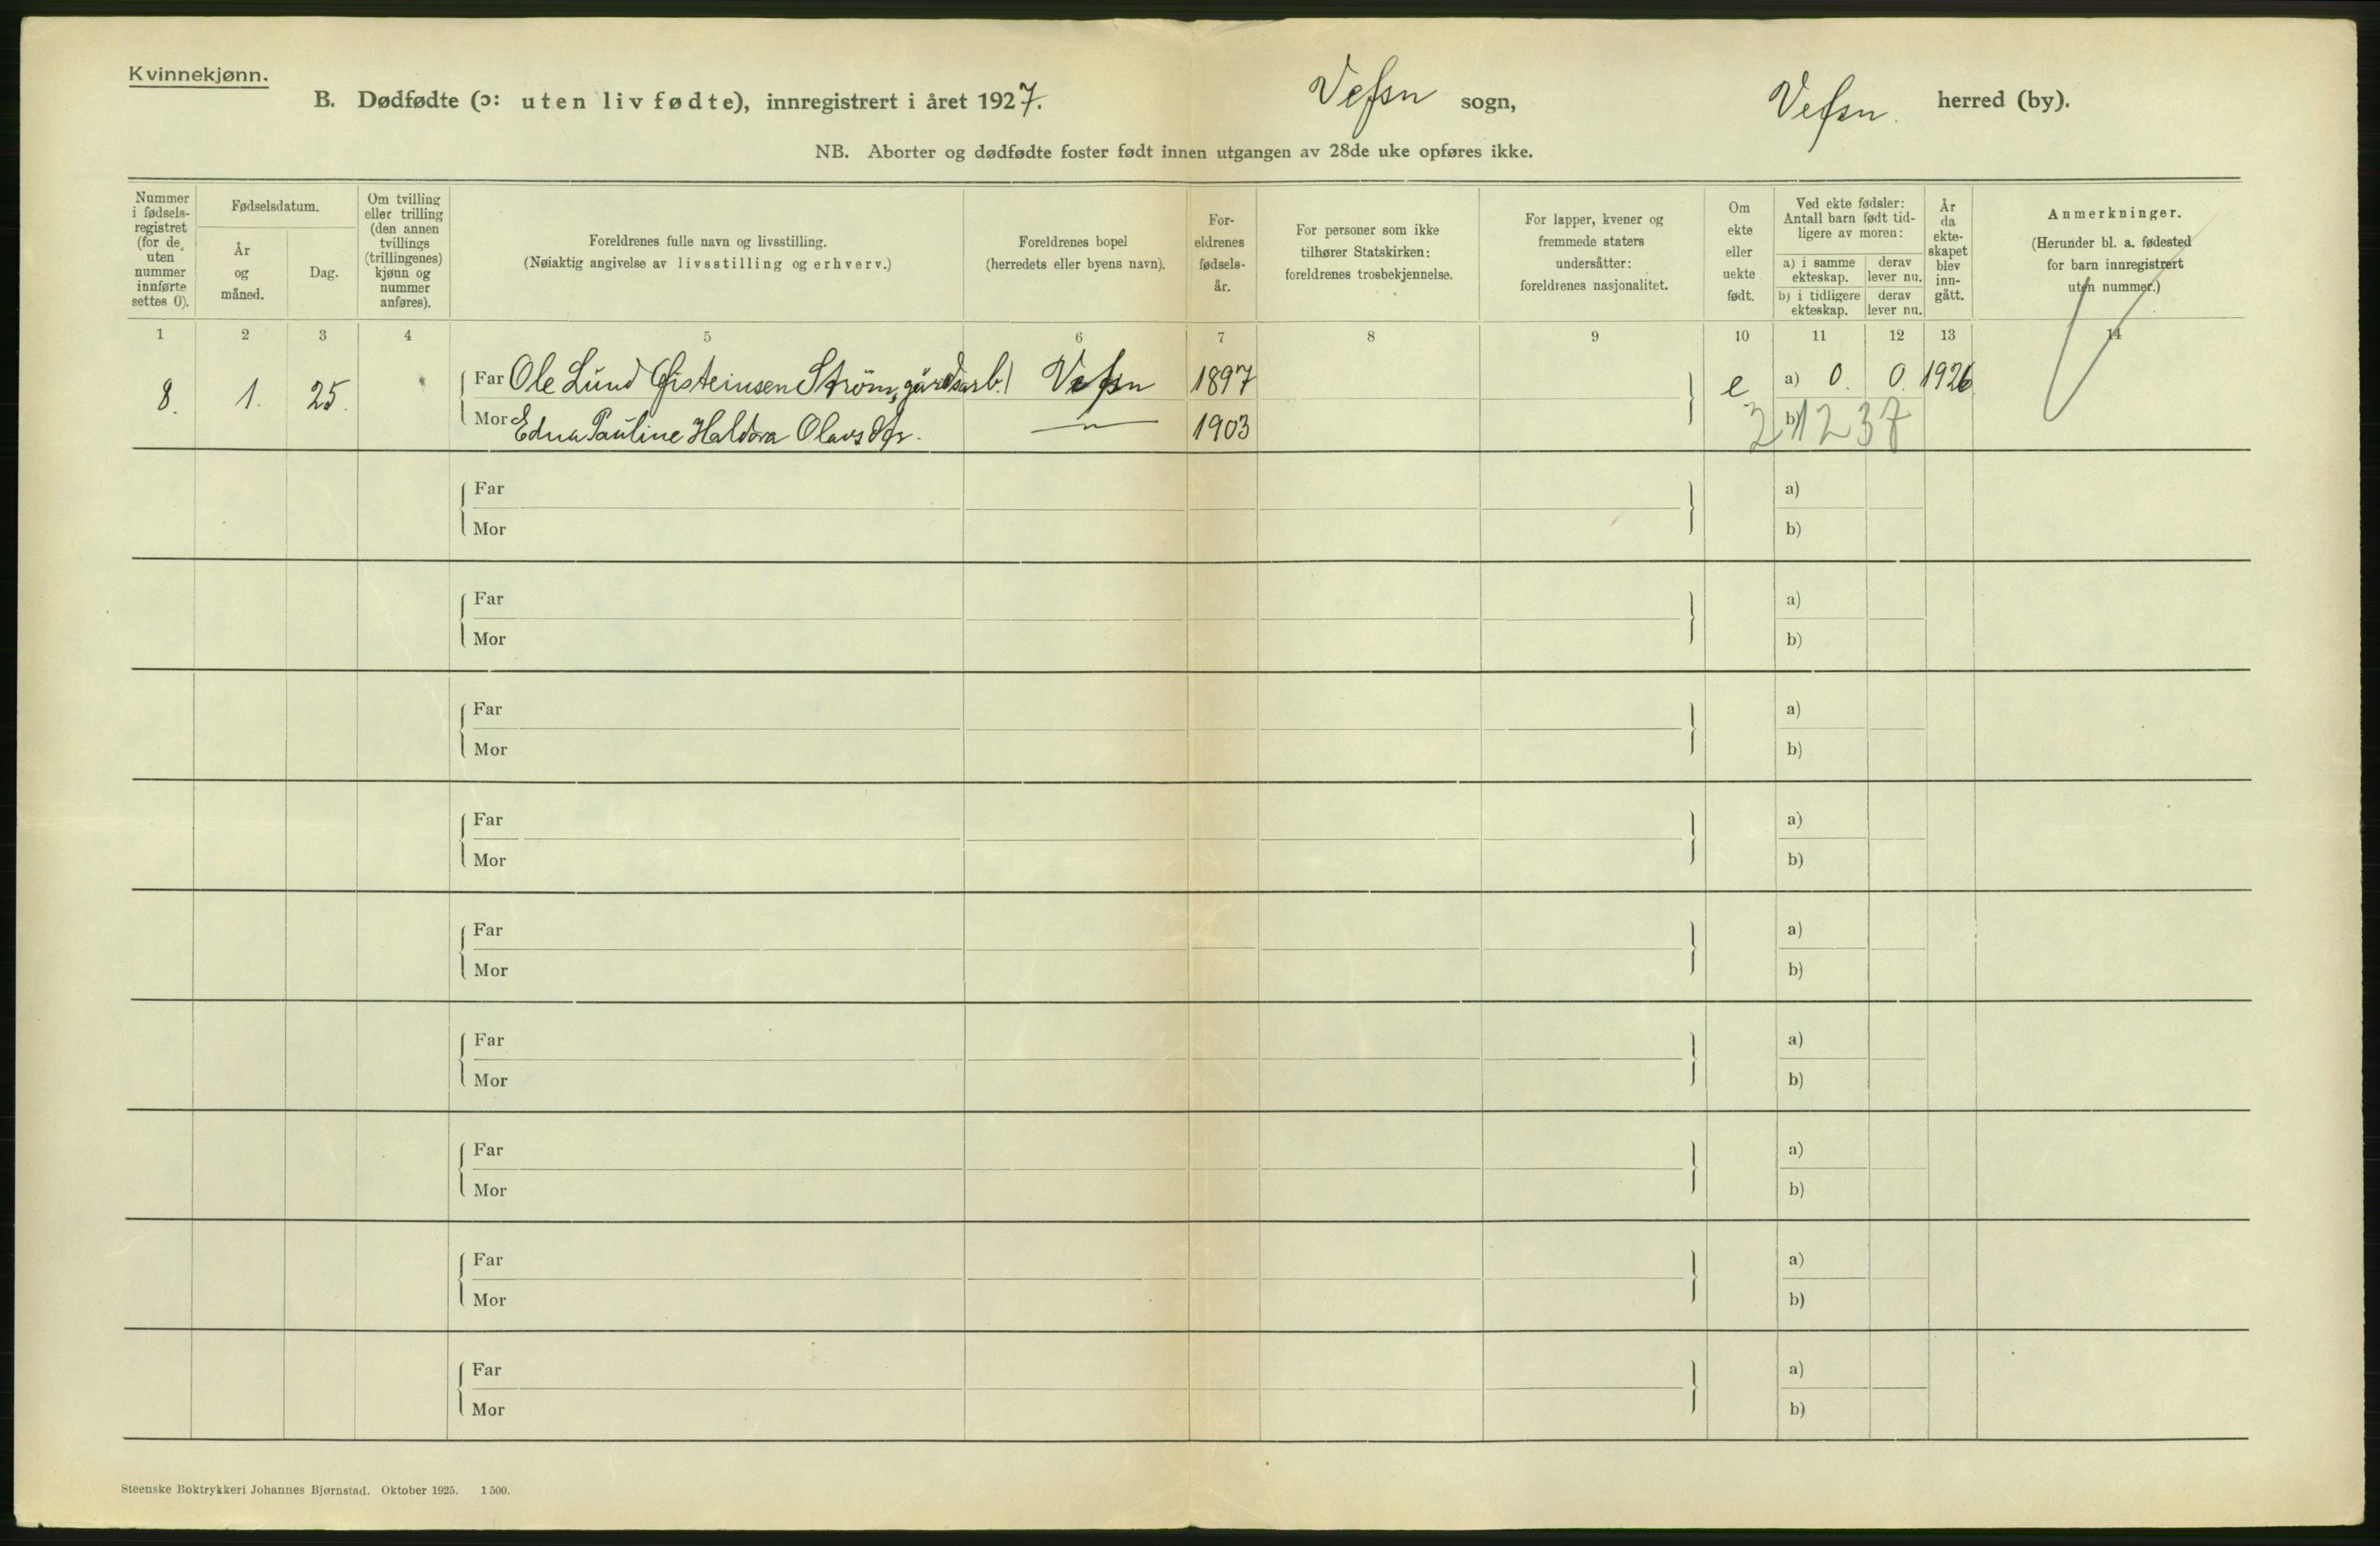 Kvinnekjønn.
B. Dødfødte (ɔ: uten liv fødte), innregistrert i året 1927. Vefsn sogn, Vefsn. herred (by).
NB. Aborter og dødfødte foster født innen utgangen av 28de uke opføres ikke.
Nummer i fødsels- registret (for de uten nummer innførte settes 0).
Fødselsdatum.
År og måned.
Dag.
Om tvilling eller trilling (den annen tvillings (trillingenes) kjønn og nummer anføres).
Foreldrenes fulle navn og livsstilling.
(Nøiaktig angivelse av livsstilling og erhverv.)
Foreldrenes bopel
(herredets eller byens navn).
For- eldrenes fødsels- år.
For personer som ikke
tilhører Statskirken:
foreldrenes trosbekjennelse.
For lapper, kvener og
fremmede staters
undersåtter:
foreldrenes nasjonalitet.
Om ekte eller uekte født.
Ved ekte fødsler:
Antall barn født tid-
ligere av moren:
a) i samme ekteskap.
derav lever nu.
b) i tidligere ekteskap.
derav lever nu.
År da ekte- skapet blev inn- gått.
Anmerkninger.
(Herunder bl. a. fødested
for barn innregistrert
uten nummer.)
1 2 3 4 5 6 7 8 9 10 11 12 13 14
8. 1. 25. Far Ole Lund Øisteinsen Strøm, gårdsarb. Vefsn 1897 e a) 0. 0. 1926
Mor Edna Pauline Haldora Olavsdtr. — " — 1903 b)
2 1237
Far a)
Mor b)
Far a)
Mor b)
Far a)
Mor b)
Far a)
Mor b)
Far a)
Mor b)
Far a)
Mor b)
Far a)
Mor b)
Far a)
Mor b)
Far a)
Mor b)
Steenske Boktrykkeri Johannes Bjørnstad. Oktober 1925. 1500.